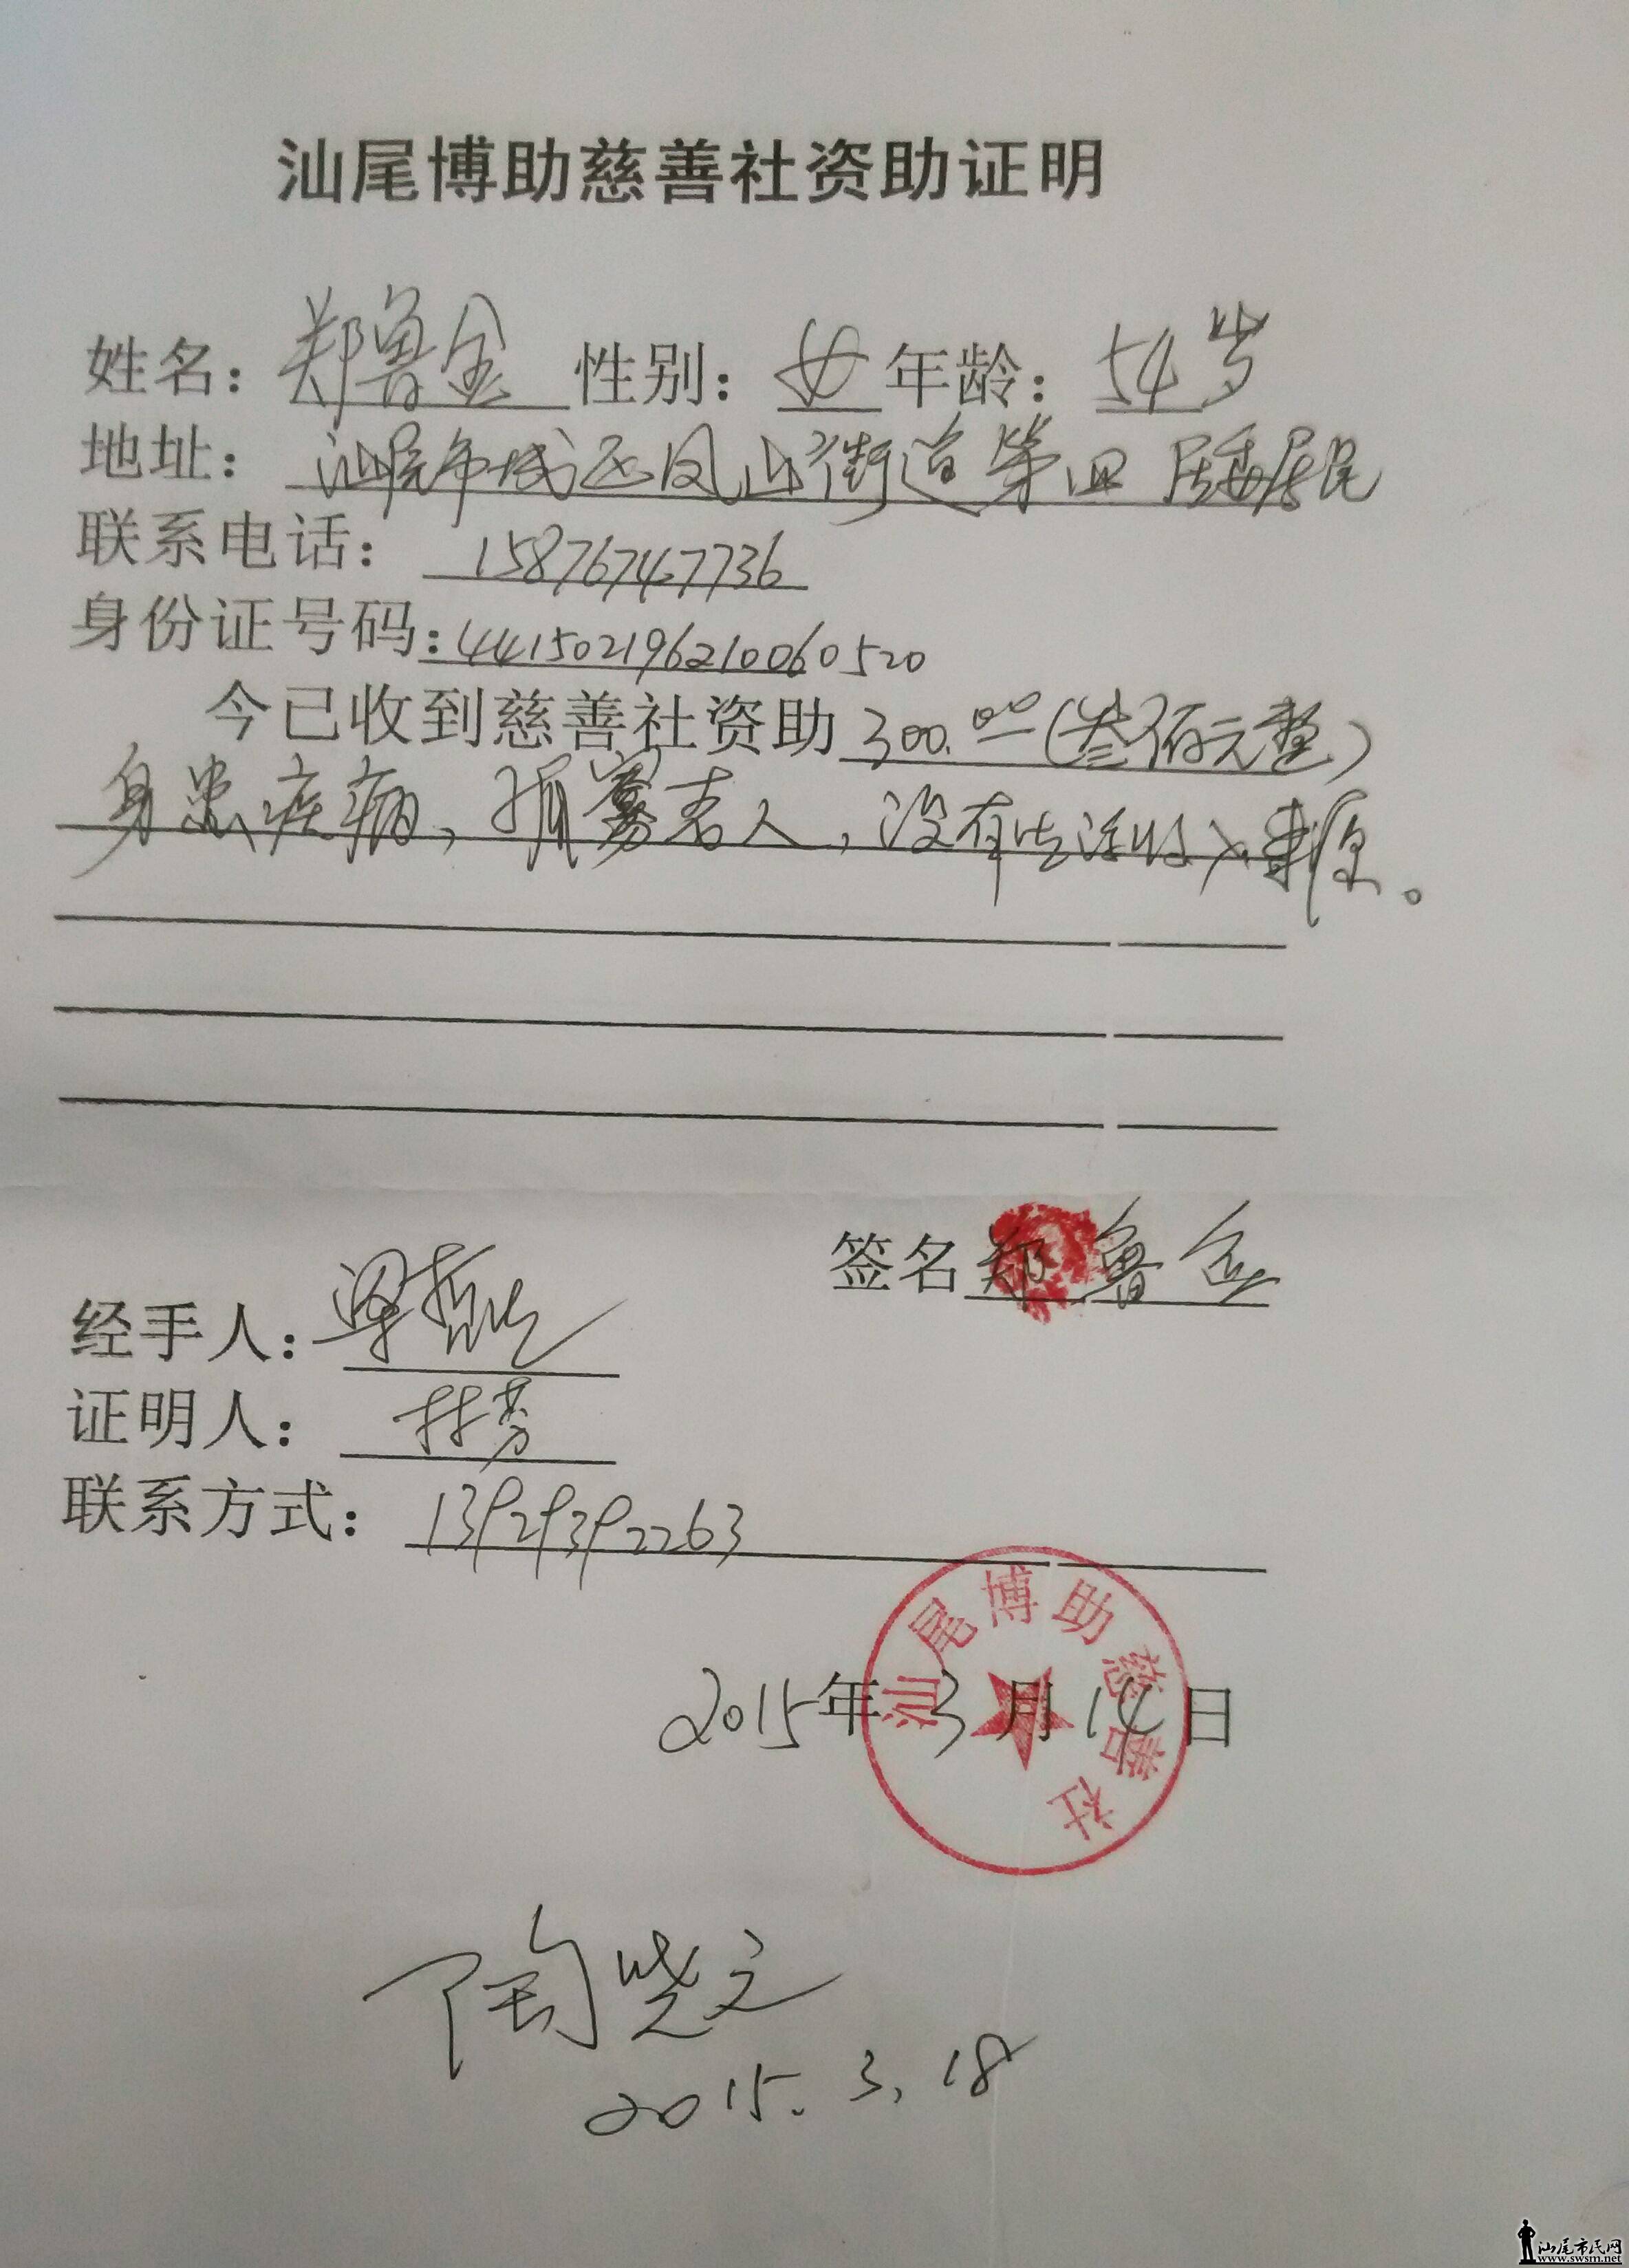 汕尾博助慈善社资助证明
姓名：郑鲁金 性别：女 年龄：54岁
地址：汕尾市城区凤山街道第四居委居民
联系电话：15876747736
身份证号码：441502196210060520
今已收到慈善社资助300.00（叁佰元整）
身患疾病，孤寡老人，没有生活收入来源。
签名 郑鲁金
经手人：
证明人：林芳
联系方式：13929392263
汕尾博助慈善社
2015年3月14日
陶
2015.3.18
汕尾市民网
www.swsm.net